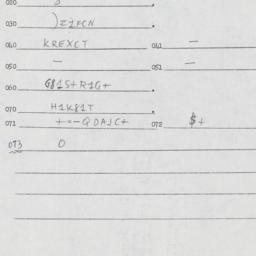 020
030 )Z1FCN .
040 KREXCT 041 —
050 — 051 —
060 G81S+R1G+ .
070 H1K81T .
071 +=-QDAJC+ 072 $+
073 0